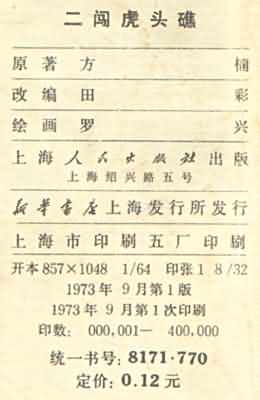 二闯虎头礁
原著方楠
改编田彩
绘画罗兴
上海人民出版社出版
上海绍兴路五号
新华书店上海发行所发行
上海市印刷五厂印刷
开本857×1048 1/64 印张1 8/32
1973年9月第1版
1973年9月第1次印刷
印数：000,001—400,000
统一书号：8171·770
定价：0.12元